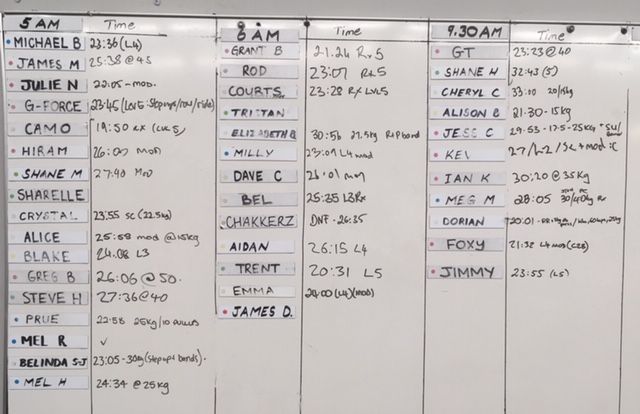 5 AM Time
MICHAEL B 23:36 (L4)
JAMES M 25:38 @ 45
JULIE N 22:05 - mod.
G-FORCE 23:45
CAMO 19:50 RX (LVL 5)
HIRAM 26:00 MOD
SHANE M 27:40 MOD
SHARELLE
CRYSTAL 23:55 SC (22.5kg)
ALICE 25:58 mod @15kg
BLAKE 24.08 L3
GREG B 26:06 @ 50.
STEVE H 27:36 @ 40
PRUE 22:58 25kg/10
MEL R ✓
BELINDA S-J 23:05 - 30kg (step ups + bands).
MEL H 24:34 @ 25kg
6 AM Time
GRANT B 21.24 Rx 5
ROD 23:07 Rx 5
COURTS 23:28 RX LVL5
TRISTAN
ELIZABETH B 30:56 27.5kg Rip band
MILLY 23:09 L4 mod
DAVE C 26:01 mod
BEL 25:35 L3Rx
CHAKKERZ DNF - 26:35
AIDAN 26:15 L4
TRENT 20:31 L5
EMMA 24:00 (L4)(mod)
JAMES D.
9.30AM Time
GT 23:23 @ 40
SHANE H 32:43 (5)
CHERYL C 33:10 20/15kg
ALISON B 21.30 - 15kg
JESS C 29.53 - 17.5 - 25kg
KEV
IAN K 30:20 @ 35kg
MEG M 28:05 30/40kg Rx
DORIAN 20:01
FOXY 21:32 L4 mod
JIMMY 23:55 (L5)